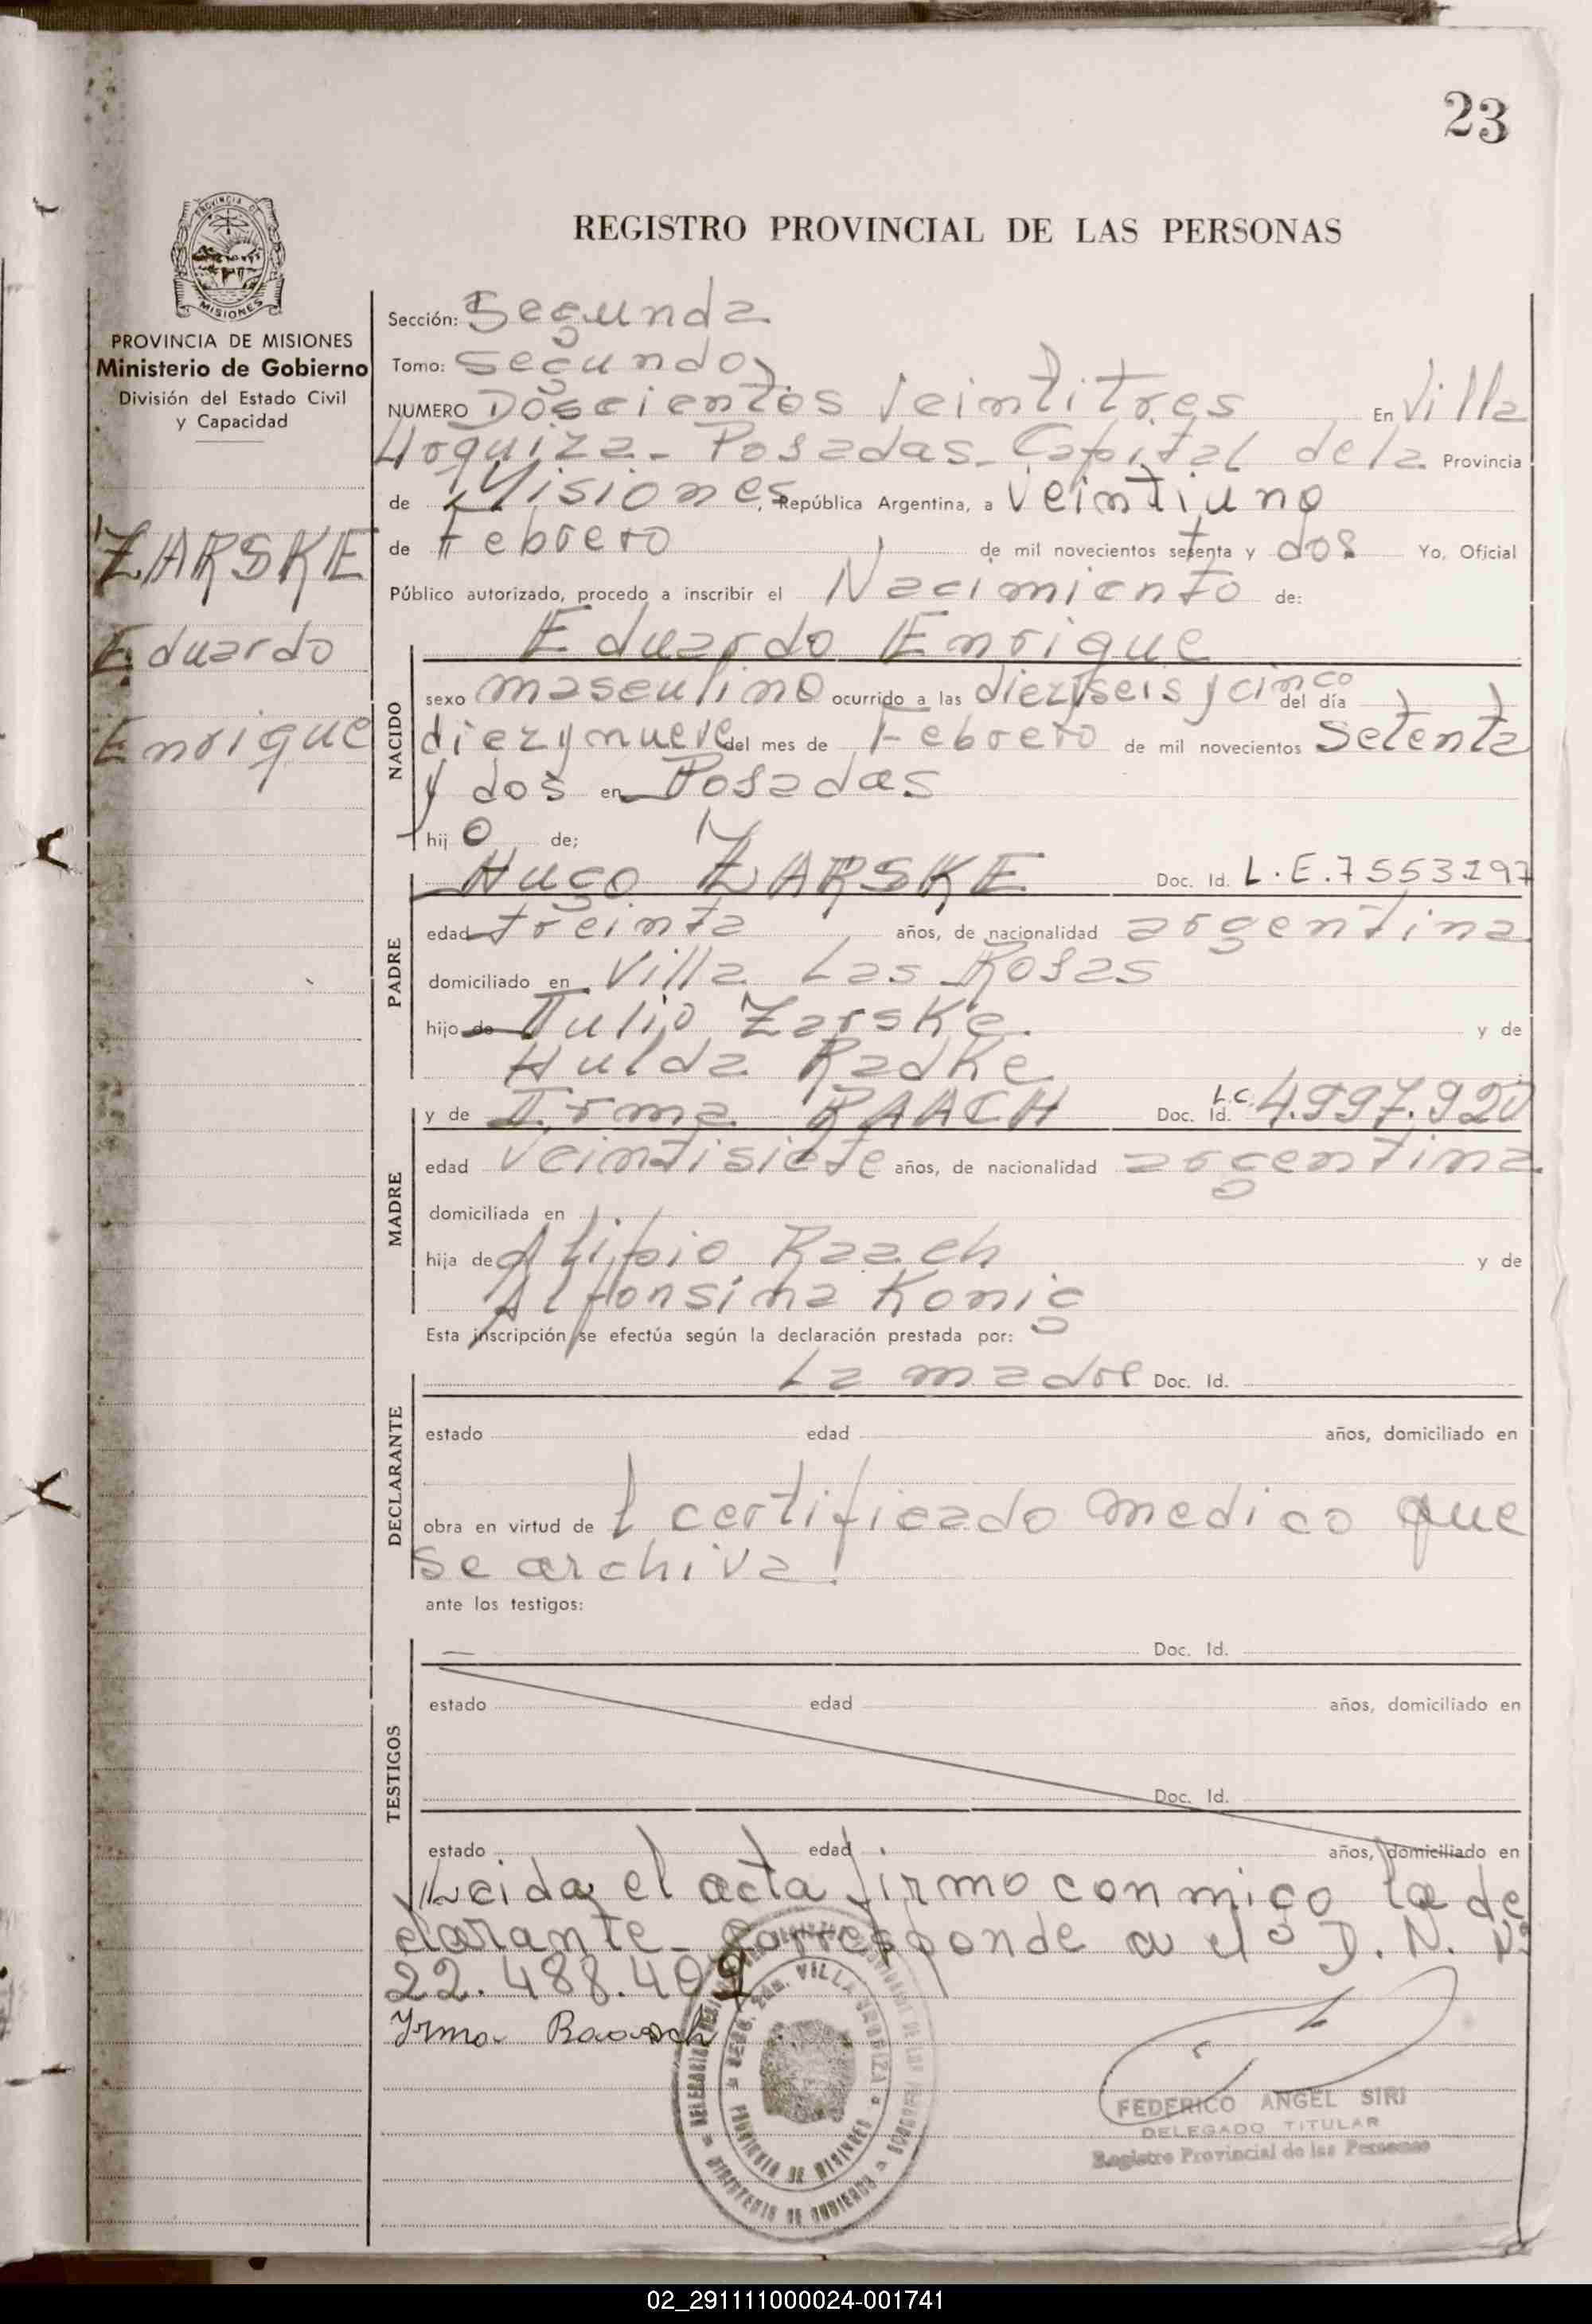 23
REGISTRO PROVINCIAL DE LAS PERSONAS
PROVINCIA DE MISIONES
PROVINCIA DE MISIONES
Ministerio de Gobierno
División del Estado Civil
y Capacidad
ZARSKE
Eduardo
Enrique
Sección: Segunda
Tomo: Segundo
NUMERO Doscientos Veintitres En Villa
Urquiza - Posadas - Capital de la Provincia
de Misiones, República Argentina, a veintiuno
de Febrero de mil novecientos setenta y dos Yo, Oficial
Público autorizado, procedo a inscribir el Nacimiento de:
Eduardo Enrique
NACIDO
sexo masculino ocurrido a las diezyseis y cinco del día
diezynueve del mes de Febrero de mil novecientos Setenta
y dos en Posadas
hij o de;
PADRE
Hugo ZARSKE Doc. Id. L.E. 7553297
edad treinta años, de nacionalidad argentina
domiciliado en Villa Las Rosas
hijo de Julio Zarske y de
Hulda Radke
MADRE
y de Irma RAACH Doc. Id. L.C. 4.997.920
edad veintisiete años, de nacionalidad argentina
domiciliada en
hija de Alipio Raach y de
Alfonsina Konig
Esta inscripción se efectúa según la declaración prestada por:
DECLARANTE
La madre Doc. Id.
estado edad años, domiciliado en
obra en virtud de l certificado medico que
se archiva.
ante los testigos:
TESTIGOS
Doc. Id.
estado edad años, domiciliado en
Doc. Id.
estado edad años, domiciliado en
Leida el acta firmo conmigo la de
clarante - Corresponde a el D. N. Nº
22.488.409
Irma Raach
SECC. 2da. VILLA URQUIZA
PROVINCIA DE MISIONES
MINISTERIO DE GOBIERNO
FEDERICO ANGEL SIRI
DELEGADO TITULAR
Registro Provincial de las Personas
02_291111000024-001741